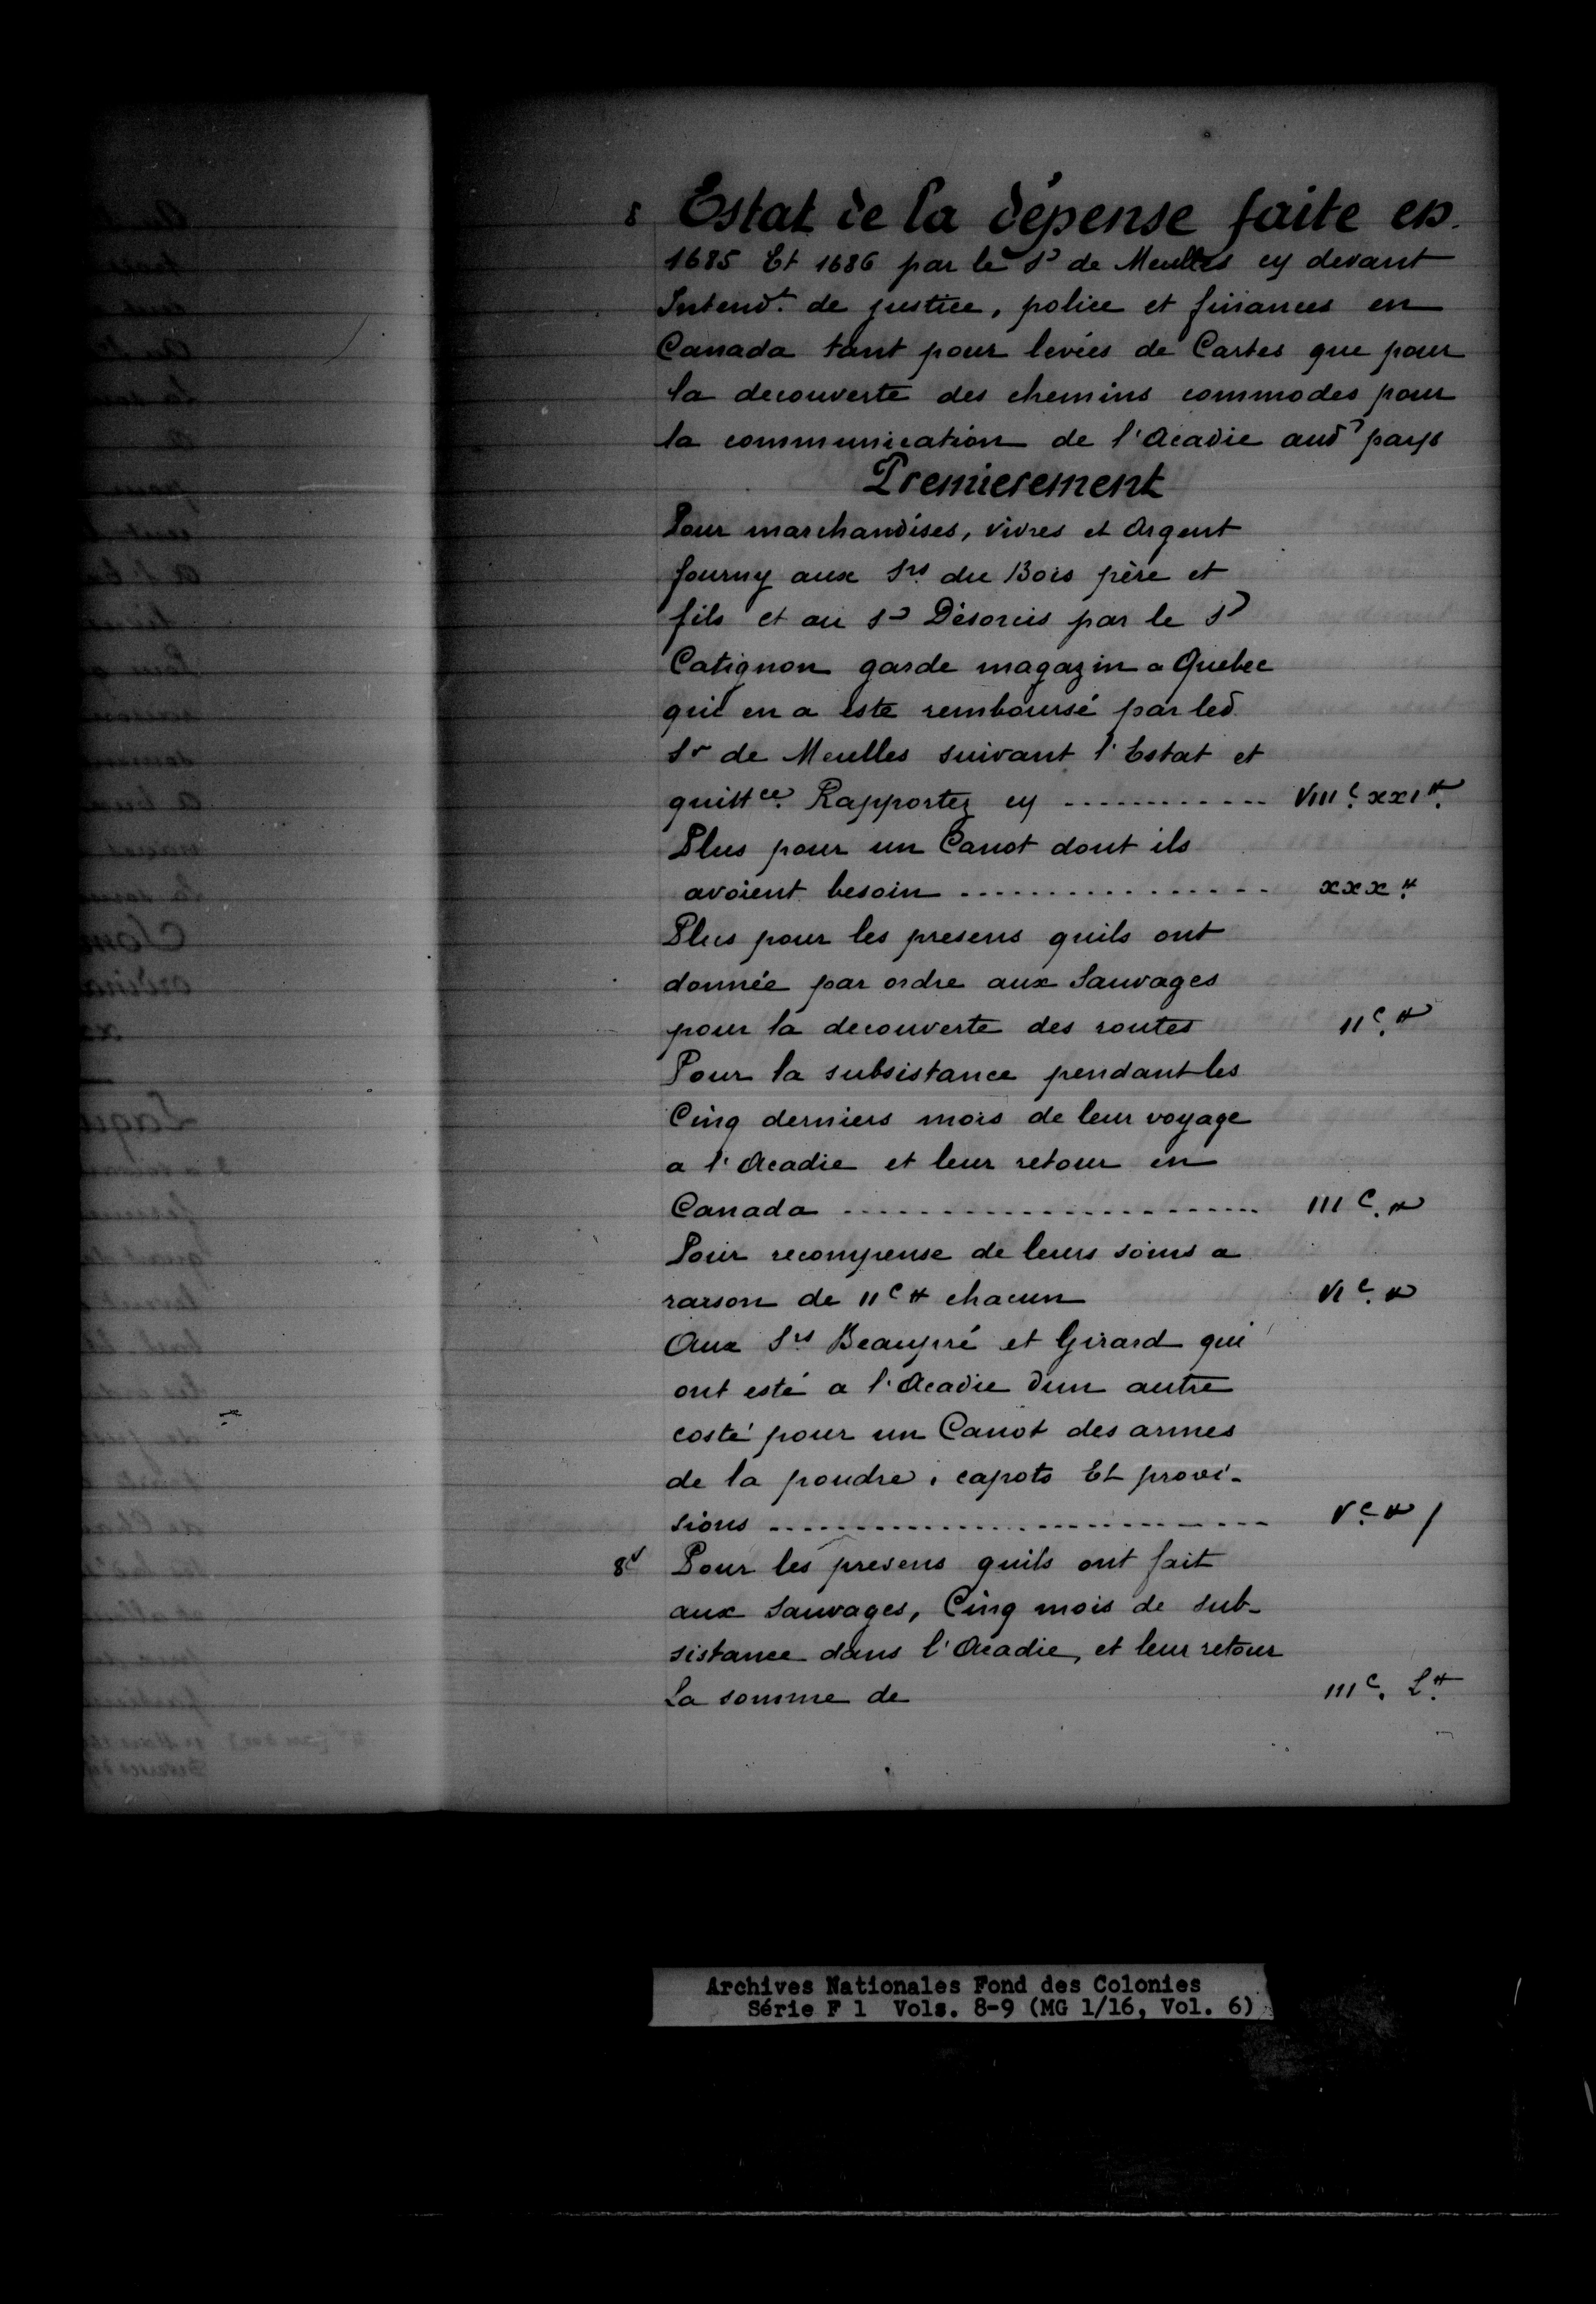 8 Estat de la dépense faite en
1685 Et 1686 par le Sr de Meulles cy devant
Intendt. de justice, police et finances en
Canada tant pour levées de Cartes que pour
la decouverte des chemins commodes pour
la communication de l'Acadie aud. pays
Premierement
Pour marchandises, vivres et Argent
fourny aux Srs du Bois père et
fils et au Sr Désorcis par le Sr
Catignon garde magazin a Quebec
qui en a esté remboursé par led.
Sr de Meulles suivant l'Estat et
quittce. Rapportez cy ............ VIIIc. xxi ₶.
Plus pour un Canot dont ils
avoient besoin ................ xxx ₶.
Plus pour les presens quils ont
donnée par ordre aux Sauvages
pour la decouverte des routes IIc. ₶
Pour la subsistance pendant les
Cinq derniers mois de leur voyage
a l'Acadie et leur retour en
Canada ...................... IIIc. ₶
Pour recompense de leurs soins a
raison de IIc ₶ chacun VIc. ₶
Aux Srs Beaupré et Girard qui
ont esté a l'Acadie d'un autre
costé pour un Canot des armes
de la poudre, capots Et provi-
sions ......................... Vc. ₶ /
8v Pour les presens quils ont fait
aux Sauvages, Cinq mois de sub-
sistance dans l'Acadie, et leur retour
La somme de IIIc. L ₶.
Archives Nationales Fond des Colonies
Série F 1 Vols. 8-9 (MG 1/16, Vol. 6)